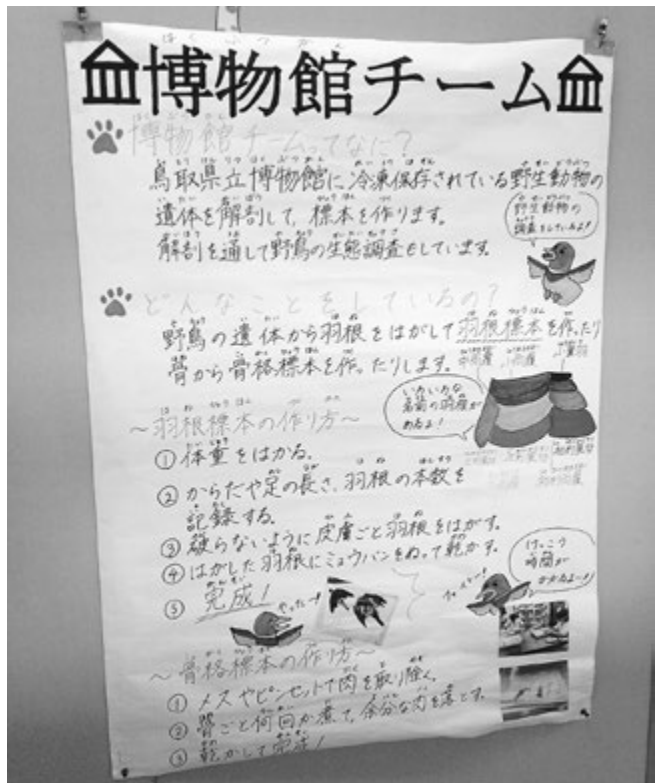 はくぶつかん
博物館チーム
博物館チームってなに?
鳥取県立博物館に冷凍保存されている野生動物の
遺体を解剖して、標本を作ります。
解剖を通して野鳥の生態調査もしています。
野生動物の
調査をしているよ!
どんなことをしているの?
野鳥の遺体から羽根をはがして羽根標本を作ったり
骨から骨格標本を作ったりします。
いろいろな
名前の羽根が
あるよ!
～羽根標本の作り方～
①体重をはかる。
②からだや足の長さ、羽根の本数を
記録する。
③破らないように皮膚ごと羽根をはがす。
④はがした羽根にミョウバンをぬって乾かす。
⑤完成!
やったー!
けっこう
時間が
かかるよー!
～骨格標本の作り方～
①メスやピンセットで肉を取り除く。
②骨ごと何回か煮て、余分な肉を落とす。
③乾かして完成!